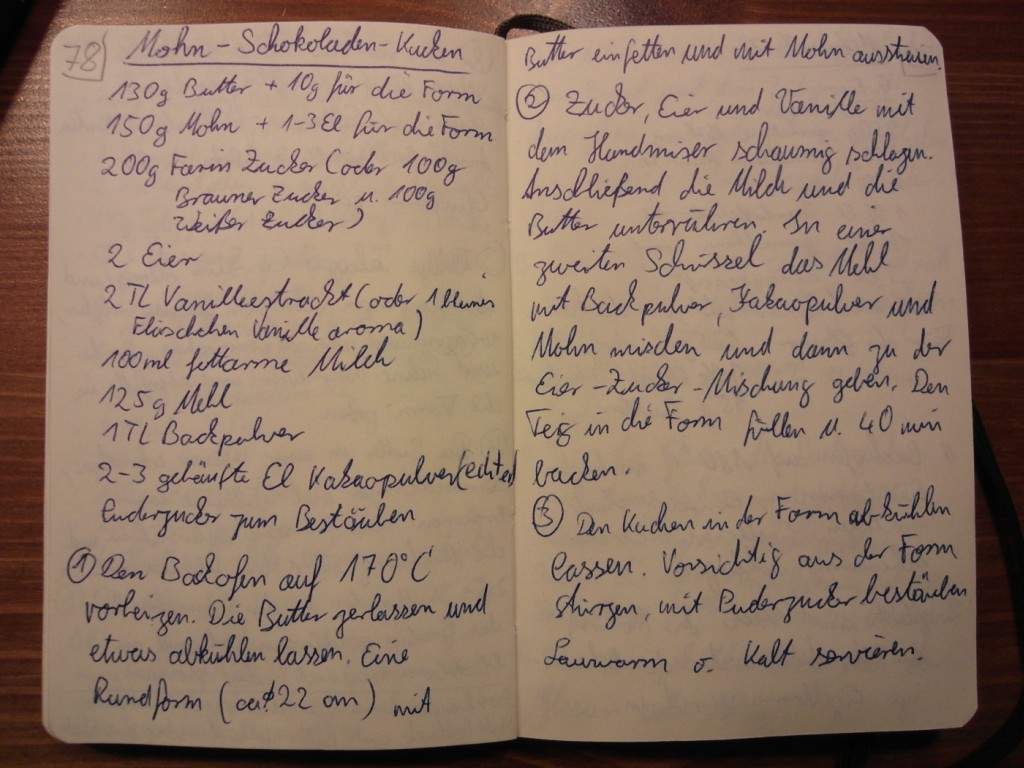 78
Mohn-Schokoladen-Kuchen
130g Butter + 10g für die Form
150g Mohn + 1-3El für die Form
200g Farin Zucker (oder 100g
Brauner Zucker u. 100g
Weißer Zucker)
2 Eier
2 TL Vanilleextrackt (oder 1 kleines
Fläschchen Vanille aroma)
100ml fettarme Milch
125g Mehl
1TL Backpulver
2-3 gehäufte El Kakaopulver (echtes)
Puderzucker zum Bestäuben
① Den Backofen auf 170°C
vorheizen. Die Butter zerlassen und
etwas abkühlen lassen. Eine
Rundform (ca. ∅ 22 cm) mit
Butter einfetten und mit Mohn ausstreuen.
② Zucker, Eier und Vanille mit
dem Handmixer schaumig schlagen.
Anschließend die Milch und die
Butter unterrühren. In einer
zweiten Schüssel das Mehl
mit Backpulver, Kakaopulver und
Mohn mischen und dann zu der
Eier-Zucker-Mischung geben. Den
Teig in die Form füllen u. 40 min
backen.
③ Den Kuchen in der Form abkühlen
lassen. Vorsichtig aus der Form
stürzen, mit Puderzucker bestäuben
Lauwarm o. Kalt servieren.